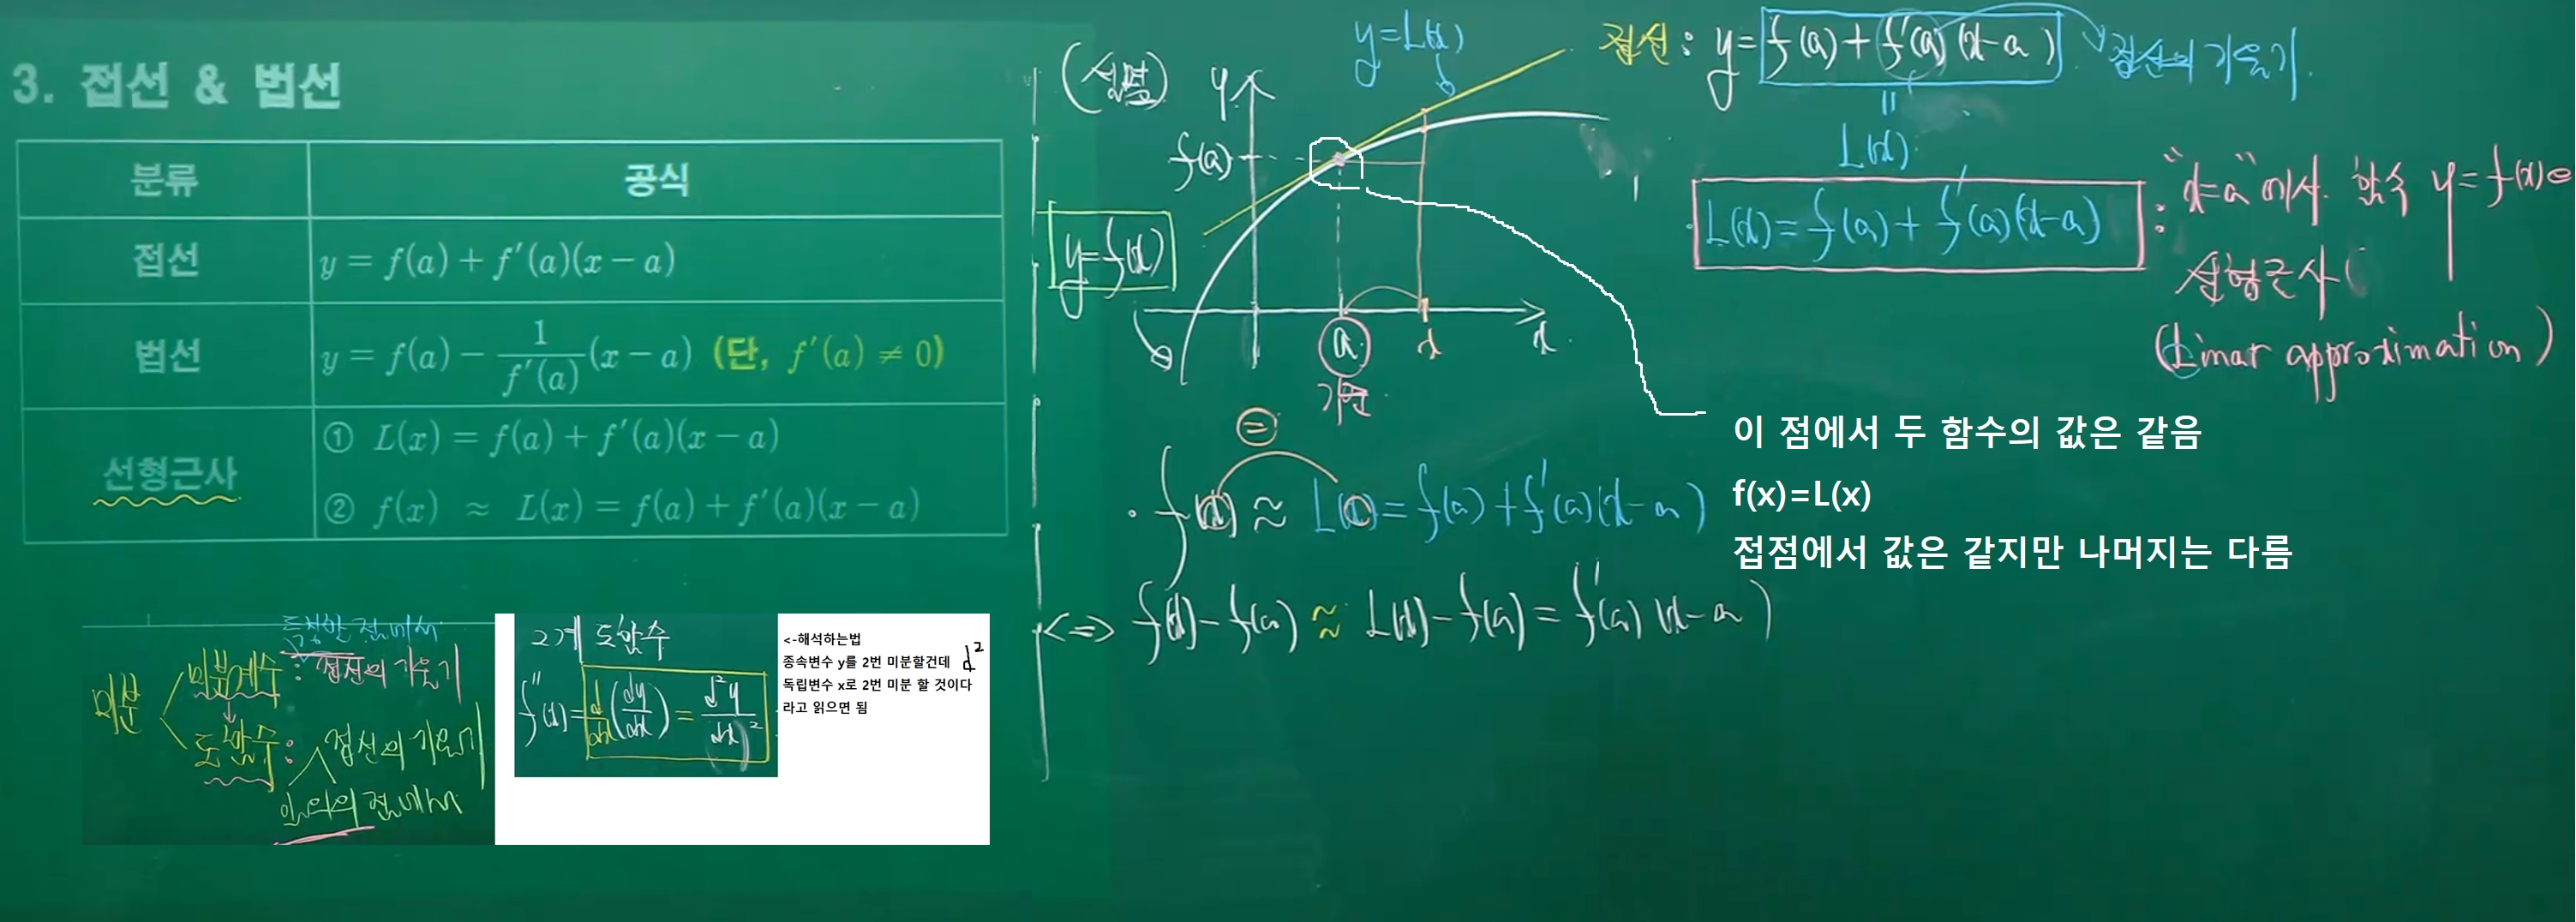 3. 접선 & 법선
분류 공식
접선 y = f(a) + f′(a)(x − a)
법선 y = f(a) − 1/f′(a) (x − a) (단, f′(a) ≠ 0)
선형근사 ① L(x) = f(a) + f′(a)(x − a)
② f(x) ≈ L(x) = f(a) + f′(a)(x − a)
특정한 점에서
미분
미분계수 : 접선의 기울기
도함수 : 접선의 기울기
임의의 점에서
2계 도함수
f″(x) = d/dx (dy/dx) = d²y/dx²
<-해석하는법
종속변수 y를 2번 미분할건데 d²
독립변수 x로 2번 미분 할 것이다
라고 읽으면 됨
(설명)
y
y=L(x)
f(a)
y=f(x)
a
x
x
기준
접선 : y= f(a) + f′(a)(x−a) 접선의 기울기.
=
L(x)
L(x) = f(a) + f′(a)(x−a) : "x=a"에서 함수 y=f(x)의
선형근사
(Linear approximation)
이 점에서 두 함수의 값은 같음
f(x)=L(x)
접점에서 값은 같지만 나머지는 다름
=
· f(x) ≈ L(x) = f(a) + f′(a)(x−a)
<=> f(x) − f(a) ≈ L(x) − f(a) = f′(a)(x−a)